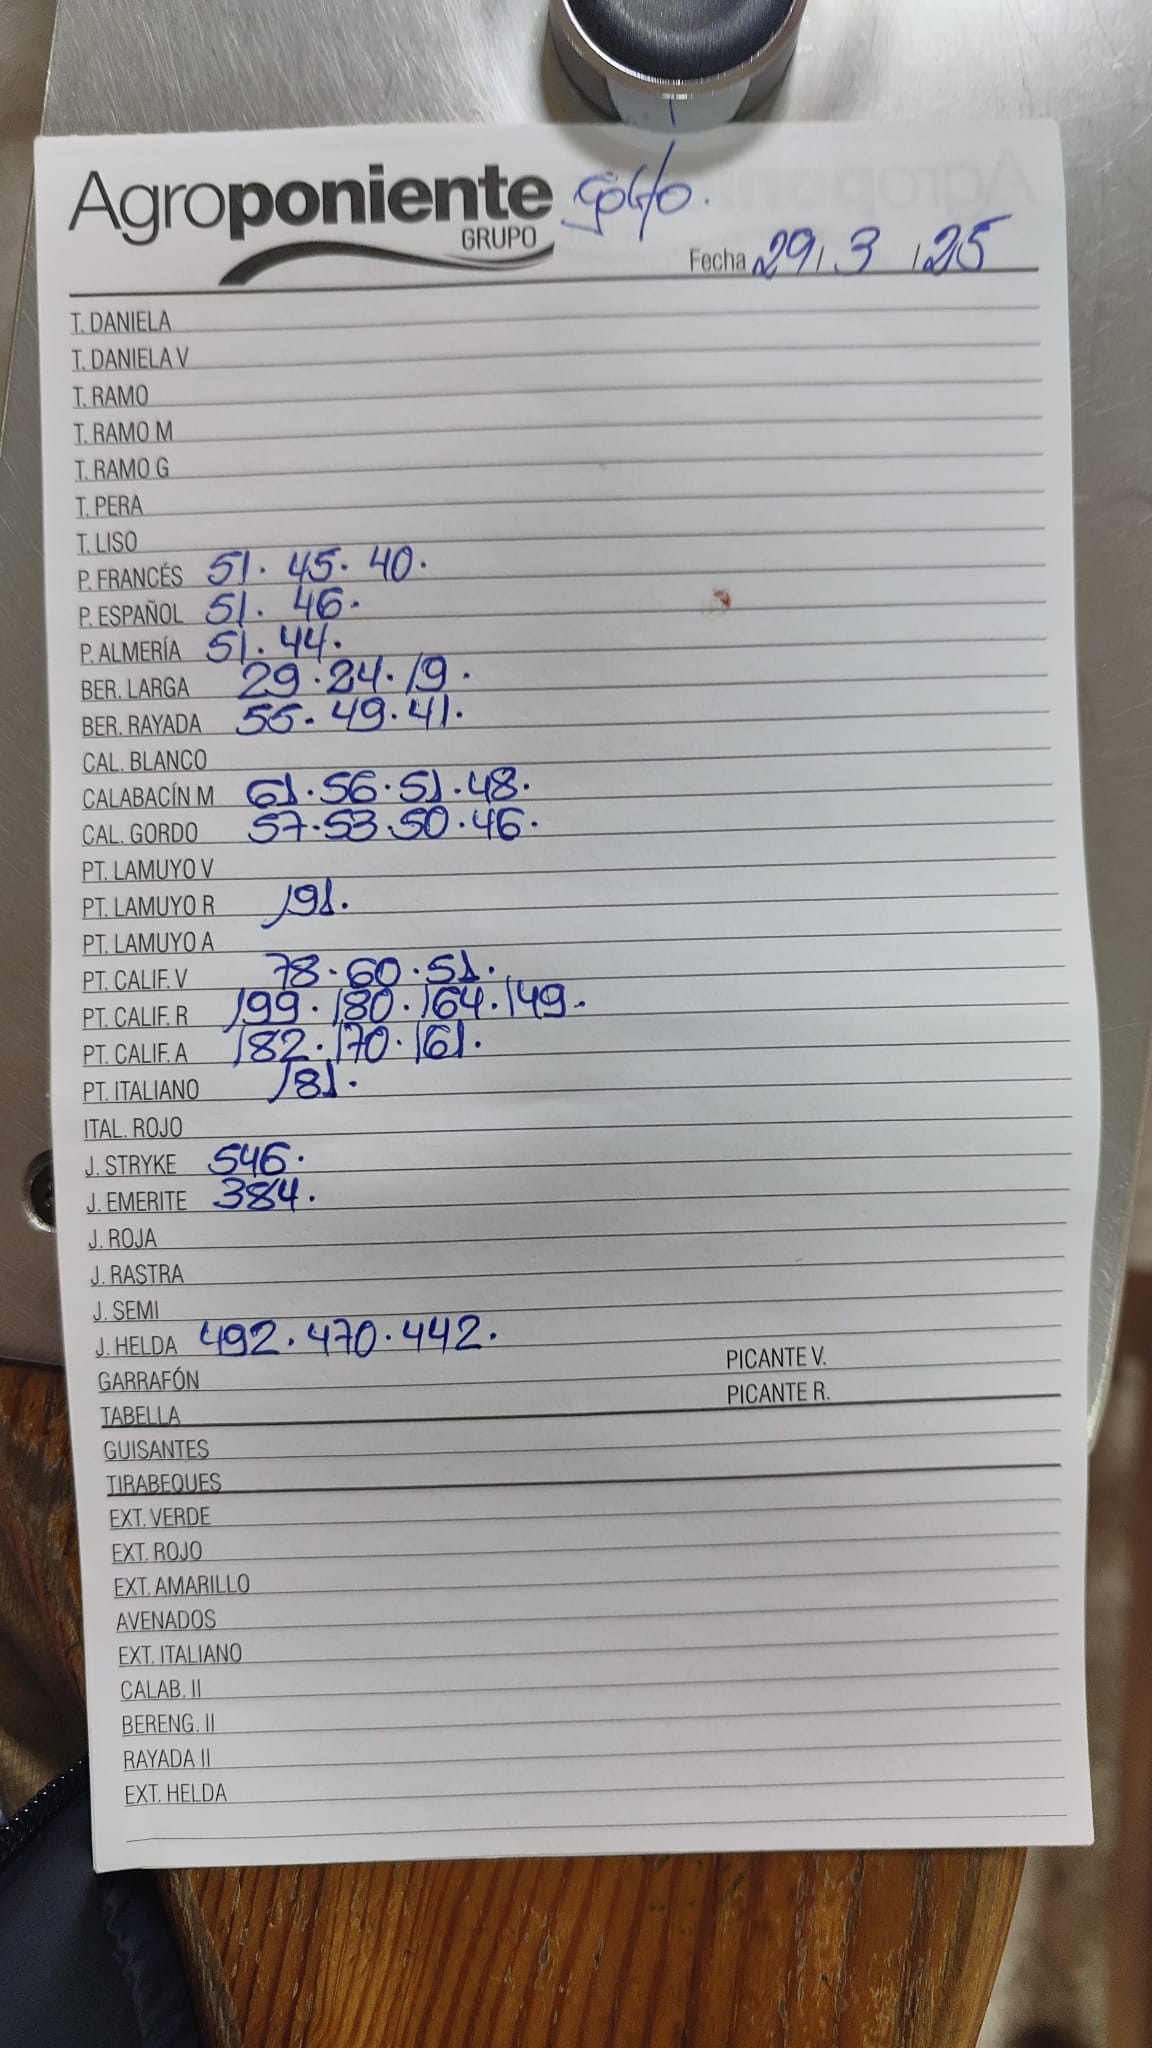 Agroponiente Golfo.
GRUPO
Fecha 29/3/25
T. DANIELA
T. DANIELA V
T. RAMO
T. RAMO M
T. RAMO G
T. PERA
T. LISO
P. FRANCÉS 51. 45. 40.
P. ESPAÑOL 51. 46.
P. ALMERÍA 51. 44.
BER. LARGA 29. 24. 19.
BER. RAYADA 55. 49. 41.
CAL. BLANCO
CALABACÍN M 61. 56. 51. 48.
CAL. GORDO 57. 53. 50. 46.
PT. LAMUYO V
PT. LAMUYO R 191.
PT. LAMUYO A
PT. CALIF. V 78. 60. 51.
PT. CALIF. R 199. 180. 164. 149.
PT. CALIF. A 182. 170. 161.
PT. ITALIANO 181.
ITAL. ROJO
J. STRYKE 546.
J. EMERITE 384.
J. ROJA
J. RASTRA
J. SEMI
J. HELDA 492. 470. 442.
PICANTE V.
GARRAFÓN
PICANTE R.
TABELLA
GUISANTES
TIRABEQUES
EXT. VERDE
EXT. ROJO
EXT. AMARILLO
AVENADOS
EXT. ITALIANO
CALAB. II
BERENG. II
RAYADA II
EXT. HELDA